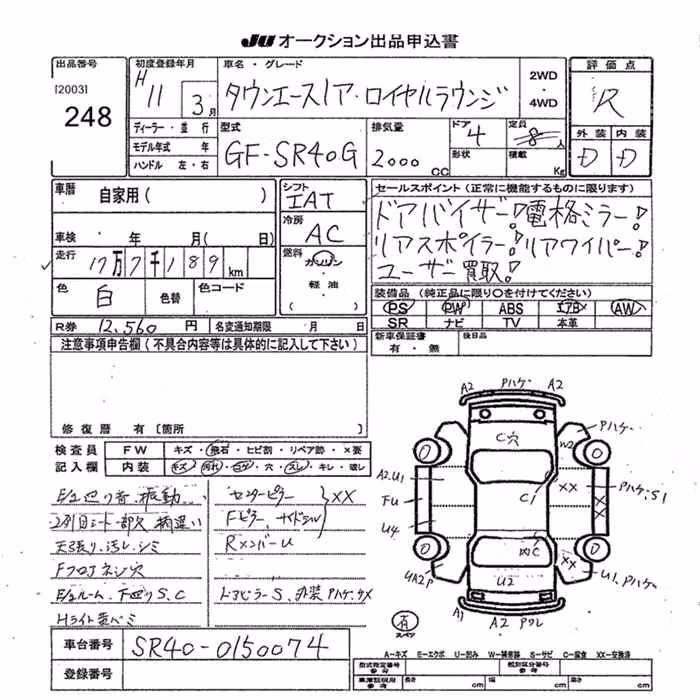 JU オークション出品申込書
出品番号
[2003]
248
初度登録年月
H 11 3月
車名・グレード
タウンエースノア・ロイヤルラウンジ
2WD・4WD
評価点
R
外装 内装
D D
ディーラー・並行
モデル年式 年
ハンドル 左・右
型式
GF-SR40G
排気量
2000cc
ドア
4
形状
定員
8人
積載
Kg
車歴 自家用( )
車検 年 月( 日)
走行 17万7千189km
色 白 色替 色コード
R券 12,560円 名変通知期限 月 日
シフト
IAT
冷房
AC
燃料
ガソリン
・
軽油
( )
セールスポイント(正常に機能するものに限ります)
ドアバイザー!電格ミラー!
リアスポイラー!リアワイパー!
ユーザー買取!
装備品(純正品に限り○を付けてください)
PS PW ABS エアB AW
SR ナビ TV 本革
新車保証書
有・無
後日品
注意事項申告欄(不具合内容等は具体的に記入して下さい)
修復歴 有[箇所
検査員記入欄
FW キズ・飛石・ヒビ割・リペア跡・×要
内装 キズ・汚れ・コゲ・穴・スレ・キレ・破レ
E/g廻り音、振動
2列目シート一部欠 柄違い
天張り、汚レ、シミ
Fフロアネジ穴
E/gルーム、下廻りS、C
Hライト黄ベミ
センターピラー
Fピラー、サイドシル
XX
RメンバーU
ドアミラーS、外装Pハゲ、サX
A2 Pハゲ A2
Pハゲ
C穴
W2
A2.U1
FU
U4
UA2P
C1
XX
XX
Pハゲ.S1
凹C
XX
U2
U1、Pハゲ
A1
A2 Pワレ
有
スペア
車台番号 SR40-0150074
登録番号
A-キズ E-エクボ U-凹み W-補修跡 S-サビ C-腐食 XX-交換済
型式指定番号
参考
類別区分番号
参考
車庫証明用
参考
長さ cm 幅 cm 高さ cm